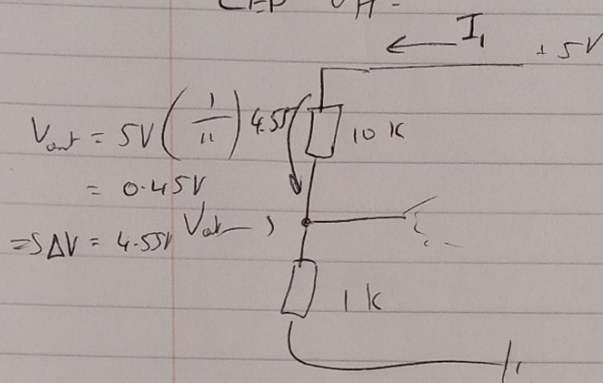 I₁
+5V
Vout = 5V(1/11)
4.55
10K
= 0.45V
=> ΔV = 4.55V
Vout
1K